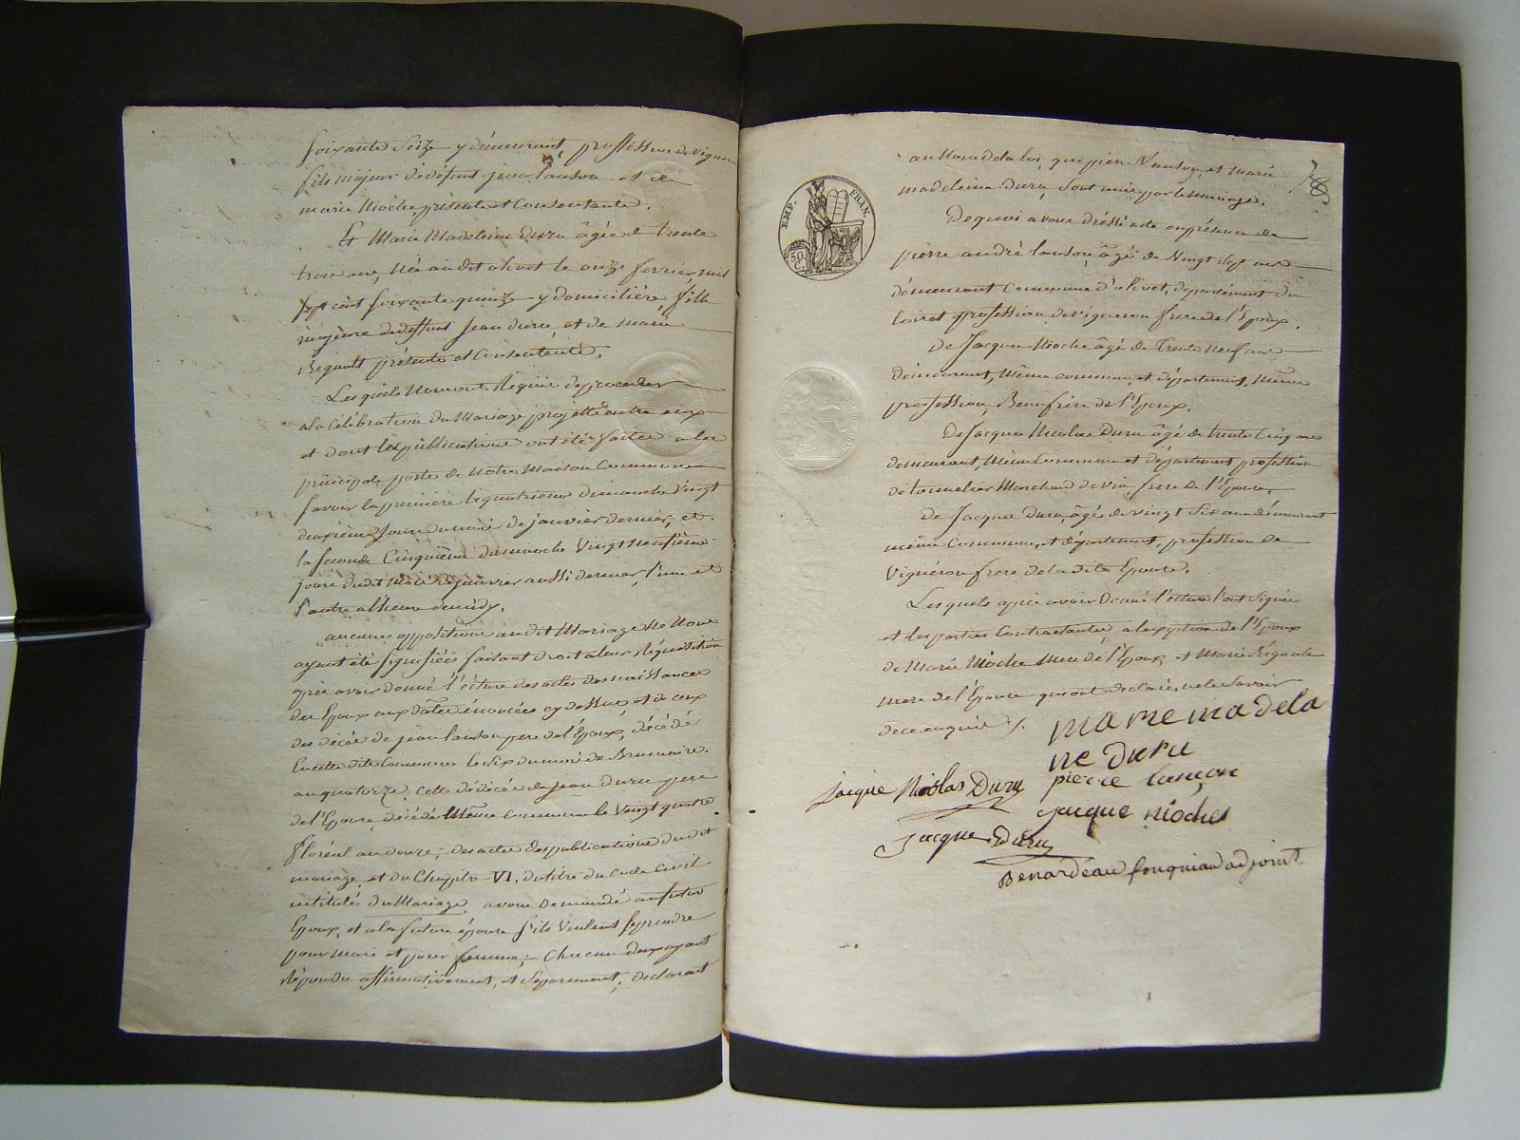 soixante Seize y demeurant, proffession de vigneron
fils majeur de défunt jean lanson et de
marie Moche, présente et Consentante.
Et Marie Madeleine Duru âgée de trente
trois ans, Née au dit olivet le onze fevrier, mil
Sept cent soixante quinze y domiciliée, fille
majeure de deffunt Jean duru, et de marie
Rigault présente et Consentente.
Lesquels Nous ont Réquis de procéder
a la célébration du Mariage projetté entre eux
et dont les publications ont été faites a la
principale porte de Notre Maison Commune
savoir la première le quatrieme dimanche vingt
deuxième Jour du mois de janvier dernier, et
la seconde Cinquième dimanche vingt neufième
jour dudit mois de janvier aussi dernier, l'une et
l'autre a l'heure de midy.
aucune opposition au dit Mariage Ne Nous
ayant été signifiée faisant droit a leur Réquisition
après avoir donné l'écture des actes des naissances
des Epoux aux dattes énoncées cy dessus et de ceux
des décès de jean lanson pere de l'Epoux, décédé
En cette dite Commune le dix du mois de Brumaire
an quatorze, celle de décès de Jean Duru pere
de l'Epouse, décédé Même commune le vingt quatre
floréal an douze; des actes des publications dudit
mariage, et du Chapitre VI, du titre du code civil
intitulés du Mariage, avons demandé au futur
Epoux, et a la future épouse s'ils Veulent se prendre
pour mari et pour femme; Chacun d'eux ayant
Répondu affirmativement, et séparément, déclarons
au Nom de la loi, que pierre lanson, et marie
madeleine duru, sont unis par le mariage.
EMP. FRAN.
50 C
De quoi avons dressé acte en présence de
pierre andré lanson, âgé de Vingt Sept ans
démeurant Commune d'olivet, département du
loiret profession de vigneron frere de l'Epoux.
De Jacque Moche âgé de trente neuf ans
demeurant, Même commune, et département, même
profession, Beau frère de l'Epoux.
De Jacque Nicolas Duru âgé de trente Cinq ans
demeurant, Même Commune et département profession
de tonnelier Marchand de vin, frere de l'Epouse.
De Jacque Duru, âgé de vingt Six ans démeurant
même Commune, et département, profession de
Vigneron frere de la dite Epouse.
Lesquels après avoir Donné l'écture l'ont Signés
et les parties Contractantes a l'exception de l'Epoux
de Marie Moche Mere de l'Epoux, et Marie Rigault
mere de l'Epouse qui ont déclarés ne le savoir
de ce enquis /.
marie madela
ne duru
jacque Nicolas Duru
pierre lançon
jacque Mochet
Jacque Duru
Benardeau fouqniau adjoint